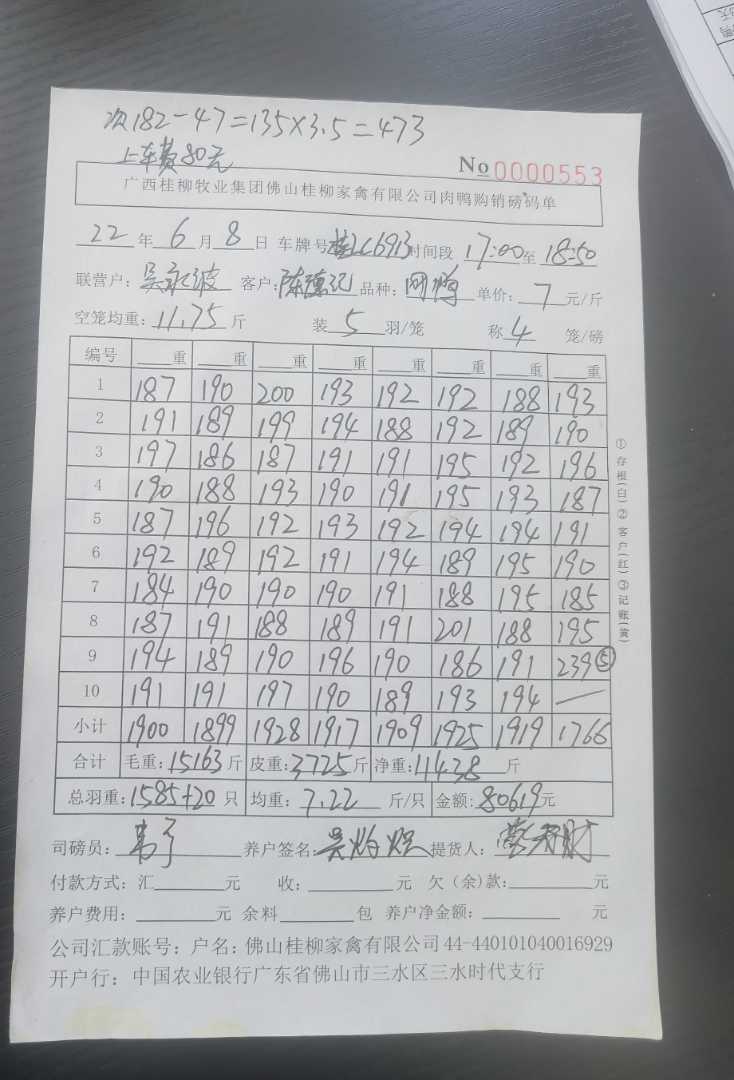 次182-47=135×3.5=473
上车费80元
No 0000553
广西桂柳牧业集团佛山桂柳家禽有限公司肉鸭购销磅码单
22年6月8日 车牌号桂LC6913时间段 17:00至18:50
联营户:吴永波 客户:陈德记 品种: 单价:7元/斤
空笼均重:11.75斤 装5羽/笼 称4笼/磅
编号 重 重 重 重 重 重 重 重
1 187 190 200 193 192 192 188 193
2 191 189 199 194 188 192 189 190
3 197 186 187 191 191 195 192 196
4 190 188 193 190 191 195 193 187
5 187 196 192 193 192 194 194 191
6 192 189 192 191 194 189 195 190
7 184 190 190 190 191 188 195 185
8 187 191 188 189 191 201 188 195
9 194 189 190 196 190 186 191 239⑤
10 191 191 197 190 189 193 194 —
小计 1900 1899 1928 1917 1909 1925 1919 1766
合计 毛重:15163斤 皮重:3725斤 净重:11438斤
总羽重:1585+20只 均重:7.22斤/只 金额:80619元
司磅员: 养户签名:吴灼 提货人:
付款方式:汇 元 收: 元 欠(余)款: 元
养户费用: 元 余料 包 养户净金额: 元
公司汇款账号:户名:佛山桂柳家禽有限公司 44-440101040016929
开户行:中国农业银行广东省佛山市三水区三水时代支行
①存根(白)②客户(红)③记账(黄)